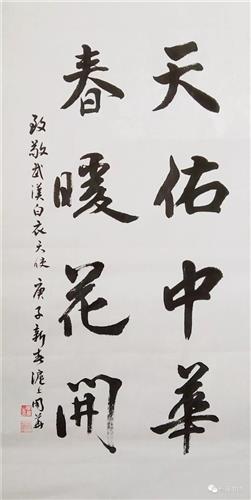 天佑中華
春暖花開
致敬武漢白衣天使 庚子新春滬上國華